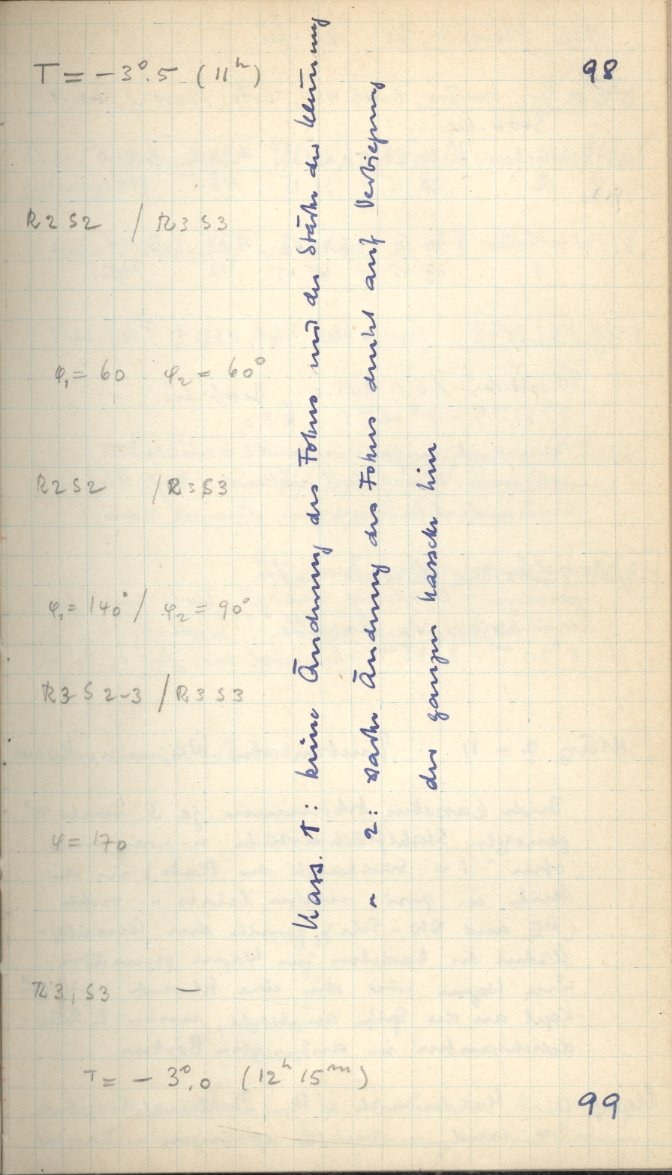 T = -3°.5 (11ʰ)
98
R2 S2 / R3 S3
φ₁ = 60 φ₂ = 60°
R2 S2 / R3 S3
φ₁ = 140° / φ₂ = 90°
R3 S2-3 / R3 S3
φ = 170
R3, S3 —
T = -3°.0 (12ʰ 15ᵐ)
99
Kass. 1: keine Änderung des Fokus mit der Stärke der Klemmung
" 2: Änderung des Fokus deutet auf Verbiegung
der ganzen Kassette hin